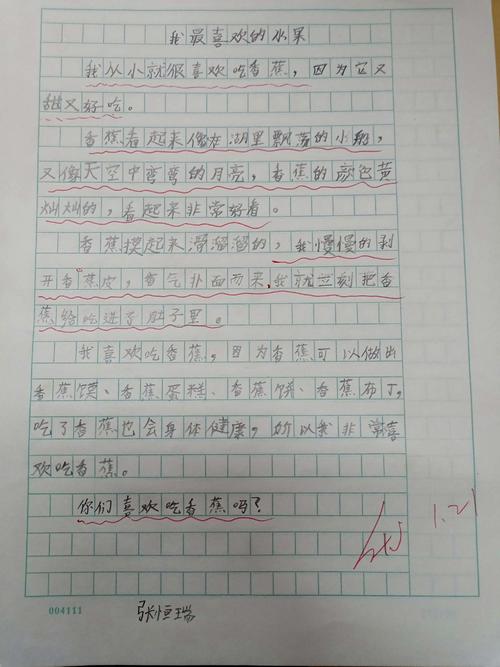 我最喜欢的水果
我从小就很喜欢吃香蕉，因为它又
甜又好吃。
香蕉看起来像在湖里飘荡的小船，
又像天空中弯弯的月亮，香蕉的颜色黄
灿灿的，看起来非常好看。
香蕉摸起来滑溜溜的，我慢慢的剥
开香蕉皮，香气扑面而来，我就立刻把香
蕉给吃进了肚子里。
我喜欢吃香蕉，因为香蕉可以做出
香蕉馍、香蕉蛋糕、香蕉饼、香蕉布丁，
吃了香蕉也会身体健康，所以我非常喜
欢吃香蕉。
你们喜欢吃香蕉吗？
1.21
004111
张恒瑞